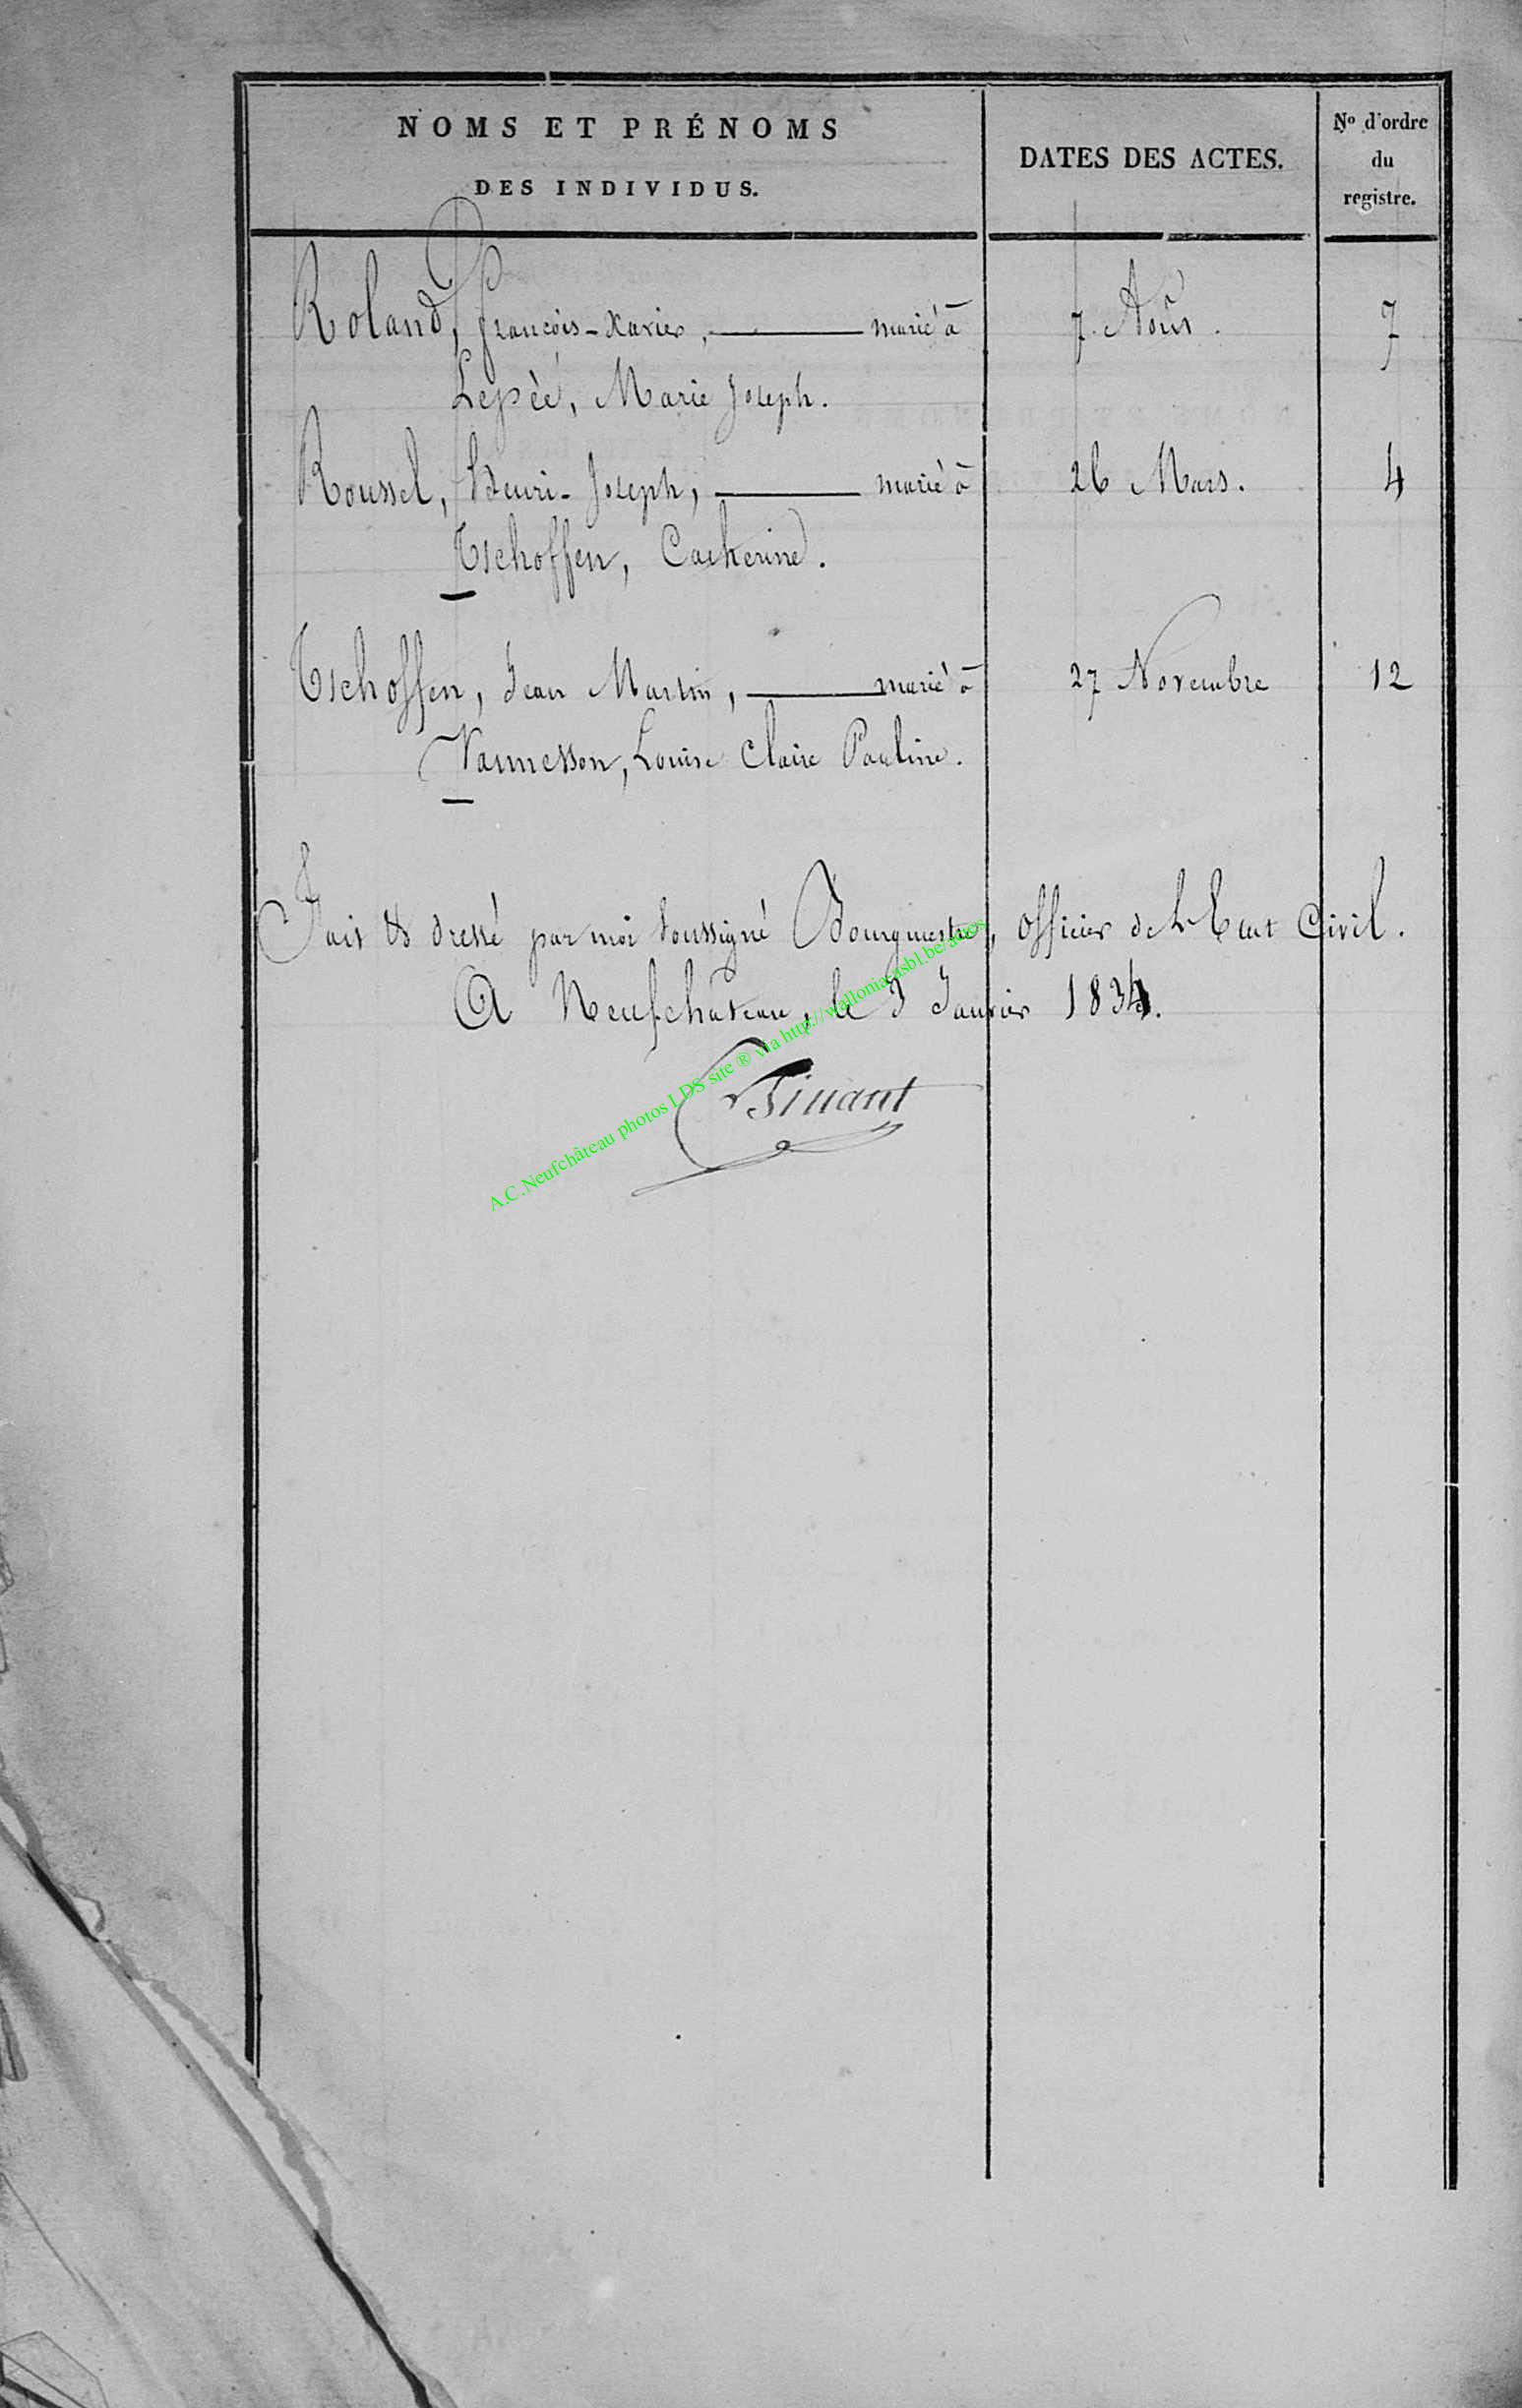 NOMS ET PRÉNOMS
DES INDIVIDUS.
DATES DES ACTES.
No d'ordre
du
registre.
Roland, François-Xavier, marié à 7. Août. 7
Lepèé, Marie Joseph.
Roussel, Henri-Joseph, marié à 26 Mars. 4
Tschoffen, Catherine.
Tschoffen, Jean Martin, marié à 27 Novembre 12
Vannesson, Louise Claire Pauline.
Fait & dressé par moi soussigné Bourgmestre, officier de l'Etat Civil.
A Neufchâteau, le 3 Janvier 1834.
A.C.Neufchâteau photos LDS site ® via http://wallonia-asbl.be/actes